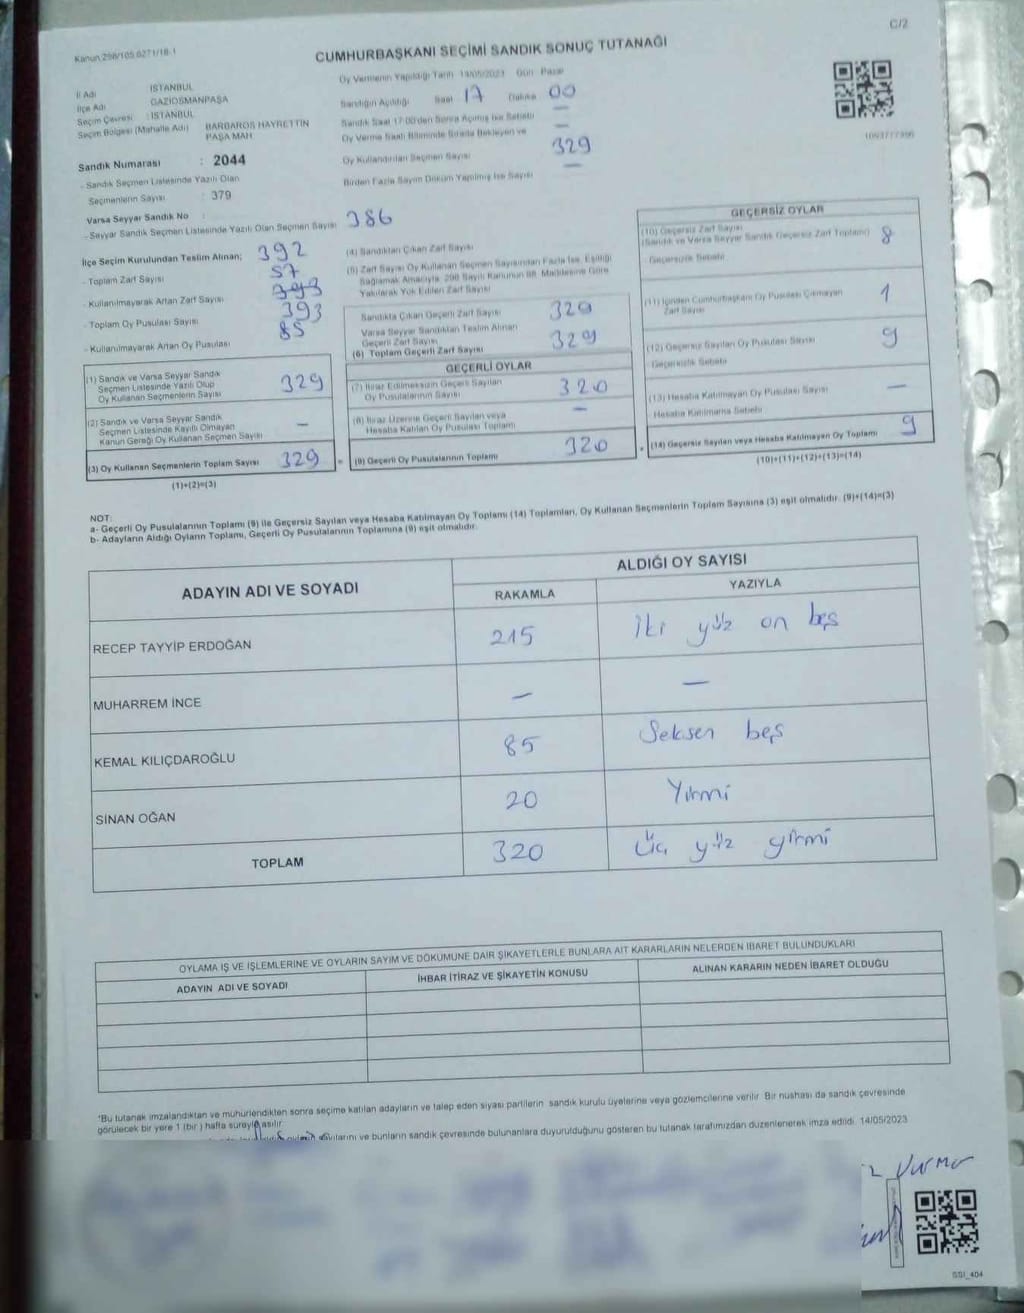 C/2
Kanun 298/105,6271/18.1
CUMHURBAŞKANI SEÇİMİ SANDIK SONUÇ TUTANAĞI
İl Adı İSTANBUL
İlçe Adı GAZİOSMANPAŞA
Seçim Çevresi : İSTANBUL
Seçim Bölgesi (Mahalle Adı) BARBAROS HAYRETTİN
PAŞA MAH
Sandık Numarası : 2044
- Sandık Seçmen Listesinde Yazılı Olan
Seçmenlerin Sayısı : 379
Varsa Seyyar Sandık No :
- Seyyar Sandık Seçmen Listesinde Yazılı Olan Seçmen Sayısı 386
Oy Vermenin Yapıldığı Tarih 14/05/2023 Gün Pazar
Sandığın Açıldığı Saat 17 Dakika 00
Sandık Saat 17:00'den Sonra Açılmış İse Sebebi —
Oy Verme Saati Bitiminde Sırada Bekleyen ve —
Oy Kullandırılan Seçmen Sayısı 329
Birden Fazla Sayım Döküm Yapılmış İse Sayısı —
İlçe Seçim Kurulundan Teslim Alınan; 392
- Toplam Zarf Sayısı 57
- Kullanılmayarak Artan Zarf Sayısı 393
- Toplam Oy Pusulası Sayısı 393
- Kullanılmayarak Artan Oy Pusulası 85
(1) Sandık ve Varsa Seyyar Sandık
Seçmen Listesinde Yazılı Olup
Oy Kullanan Seçmenlerin Sayısı 329
(2) Sandık ve Varsa Seyyar Sandık
Seçmen Listesinde Kayıtlı Olmayan
Kanun Gereği Oy Kullanan Seçmen Sayısı —
(3) Oy Kullanan Seçmenlerin Toplam Sayısı 329
(1)+(2)=(3)
(4) Sandıktan Çıkan Zarf Sayısı
(5) Zarf Sayısı Oy Kullanan Seçmen Sayısından Fazla İse, Eşitliği
Sağlamak Amacıyla, 298 Sayılı Kanunun 98. Maddesine Göre
Yakılarak Yok Edilen Zarf Sayısı
Sandıkta Çıkan Geçerli Zarf Sayısı 329
Varsa Seyyar Sandıktan Teslim Alınan
Geçerli Zarf Sayısı
(6) Toplam Geçerli Zarf Sayısı 329
GEÇERLİ OYLAR
(7) İtiraz Edilmeksizin Geçerli Sayılan
Oy Pusulasının Sayısı 320
(8) İtiraz Üzerine Geçerli Sayılan veya
Hesaba Katılan Oy Pusulası Toplamı —
(9) Geçerli Oy Pusulalarının Toplamı 320
GEÇERSİZ OYLAR
(10) Geçersiz Zarf Sayısı
(Sandık ve Varsa Seyyar Sandık Geçersiz Zarf Toplamı) 8
- Geçersizlik Sebebi
(11) İçinden Cumhurbaşkanı Oy Pusulası Çıkmayan
Zarf Sayısı 1
(12) Geçersiz Sayılan Oy Pusulası Sayısı 9
Geçersizlik Sebebi
(13) Hesaba Katılmayan Oy Pusulası Sayısı —
Hesaba Katılmama Sebebi
(14) Geçersiz Sayılan veya Hesaba Katılmayan Oy Toplamı 9
(10)+(11)+(12)+(13)=(14)
NOT:
a- Geçerli Oy Pusulalarının Toplamı (9) ile Geçersiz Sayılan veya Hesaba Katılmayan Oy Toplamı (14) Toplamları, Oy Kullanan Seçmenlerin Toplam Sayısına (3) eşit olmalıdır. (9)+(14)=(3)
b- Adayların Aldığı Oyların Toplamı, Geçerli Oy Pusulalarının Toplamına (9) eşit olmalıdır.
ADAYIN ADI VE SOYADI ALDIĞI OY SAYISI
RAKAMLA YAZIYLA
RECEP TAYYİP ERDOĞAN 215 İki yüz on beş
MUHARREM İNCE — —
KEMAL KILIÇDAROĞLU 85 Seksen beş
SİNAN OĞAN 20 Yirmi
TOPLAM 320 Üç yüz yirmi
OYLAMA İŞ VE İŞLEMLERİNE VE OYLARIN SAYIM VE DÖKÜMÜNE DAİR ŞİKAYETLERLE BUNLARA AİT KARARLARIN NELERDEN İBARET BULUNDUKLARI
ADAYIN ADI VE SOYADI İHBAR İTİRAZ VE ŞİKAYETİN KONUSU ALINAN KARARIN NEDEN İBARET OLDUĞU
*Bu tutanak imzalandıktan ve mühürlendikten sonra seçime katılan adayların ve talep eden siyasi partilerin sandık kurulu üyelerine veya gözlemcilerine verilir. Bir nushası da sandık çevresinde
görülecek bir yere 1 (bir ) hafta süreyle asılır.
ve bunların sandık çevresinde bulunanlara duyurulduğunu gösteren bu tutanak tarafımızdan düzenlenerek imza edildi. 14/05/2023
SSI_404